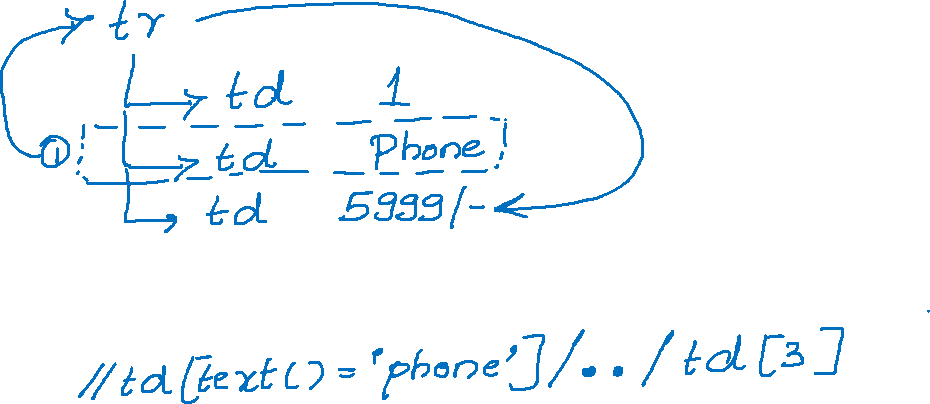 tr
td 1
① td Phone
td 5999/-
//td[text()='phone']/../td[3]